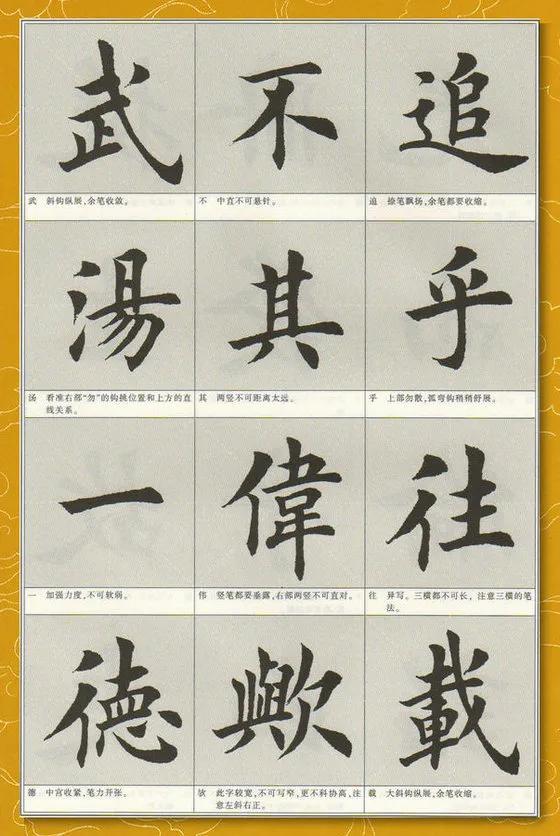 追
追 捺笔飘扬,余笔都要收缩。
乎
乎 上部勿散,弧弯钩稍稍舒展。
往
往 异写。三横都不可长,注意三横的笔
法。
載
载 大斜钩纵展,余笔收缩。
不
不 中直不可悬针。
其
其 两竖不可距离太远。
偉
伟 竖笔都要垂露,右部两竖不可直对。
歟
欤 此字较宽,不可写窄,更不科协高,注
意左斜右正。
武
武 斜钩纵展,余笔收敛。
湯
汤 看准右部“勿”的钩挑位置和上方的直
线关系。
一
一 加强力度,不可软弱。
德
德 中宫收紧,笔力开张。